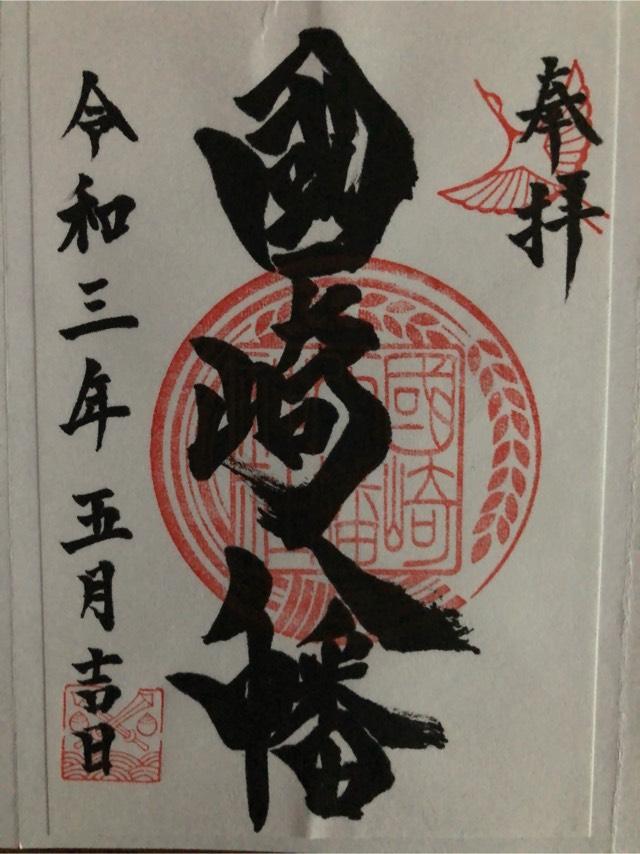 奉拝
國崎八幡
國崎
八幡
神社
令和三年五月吉日